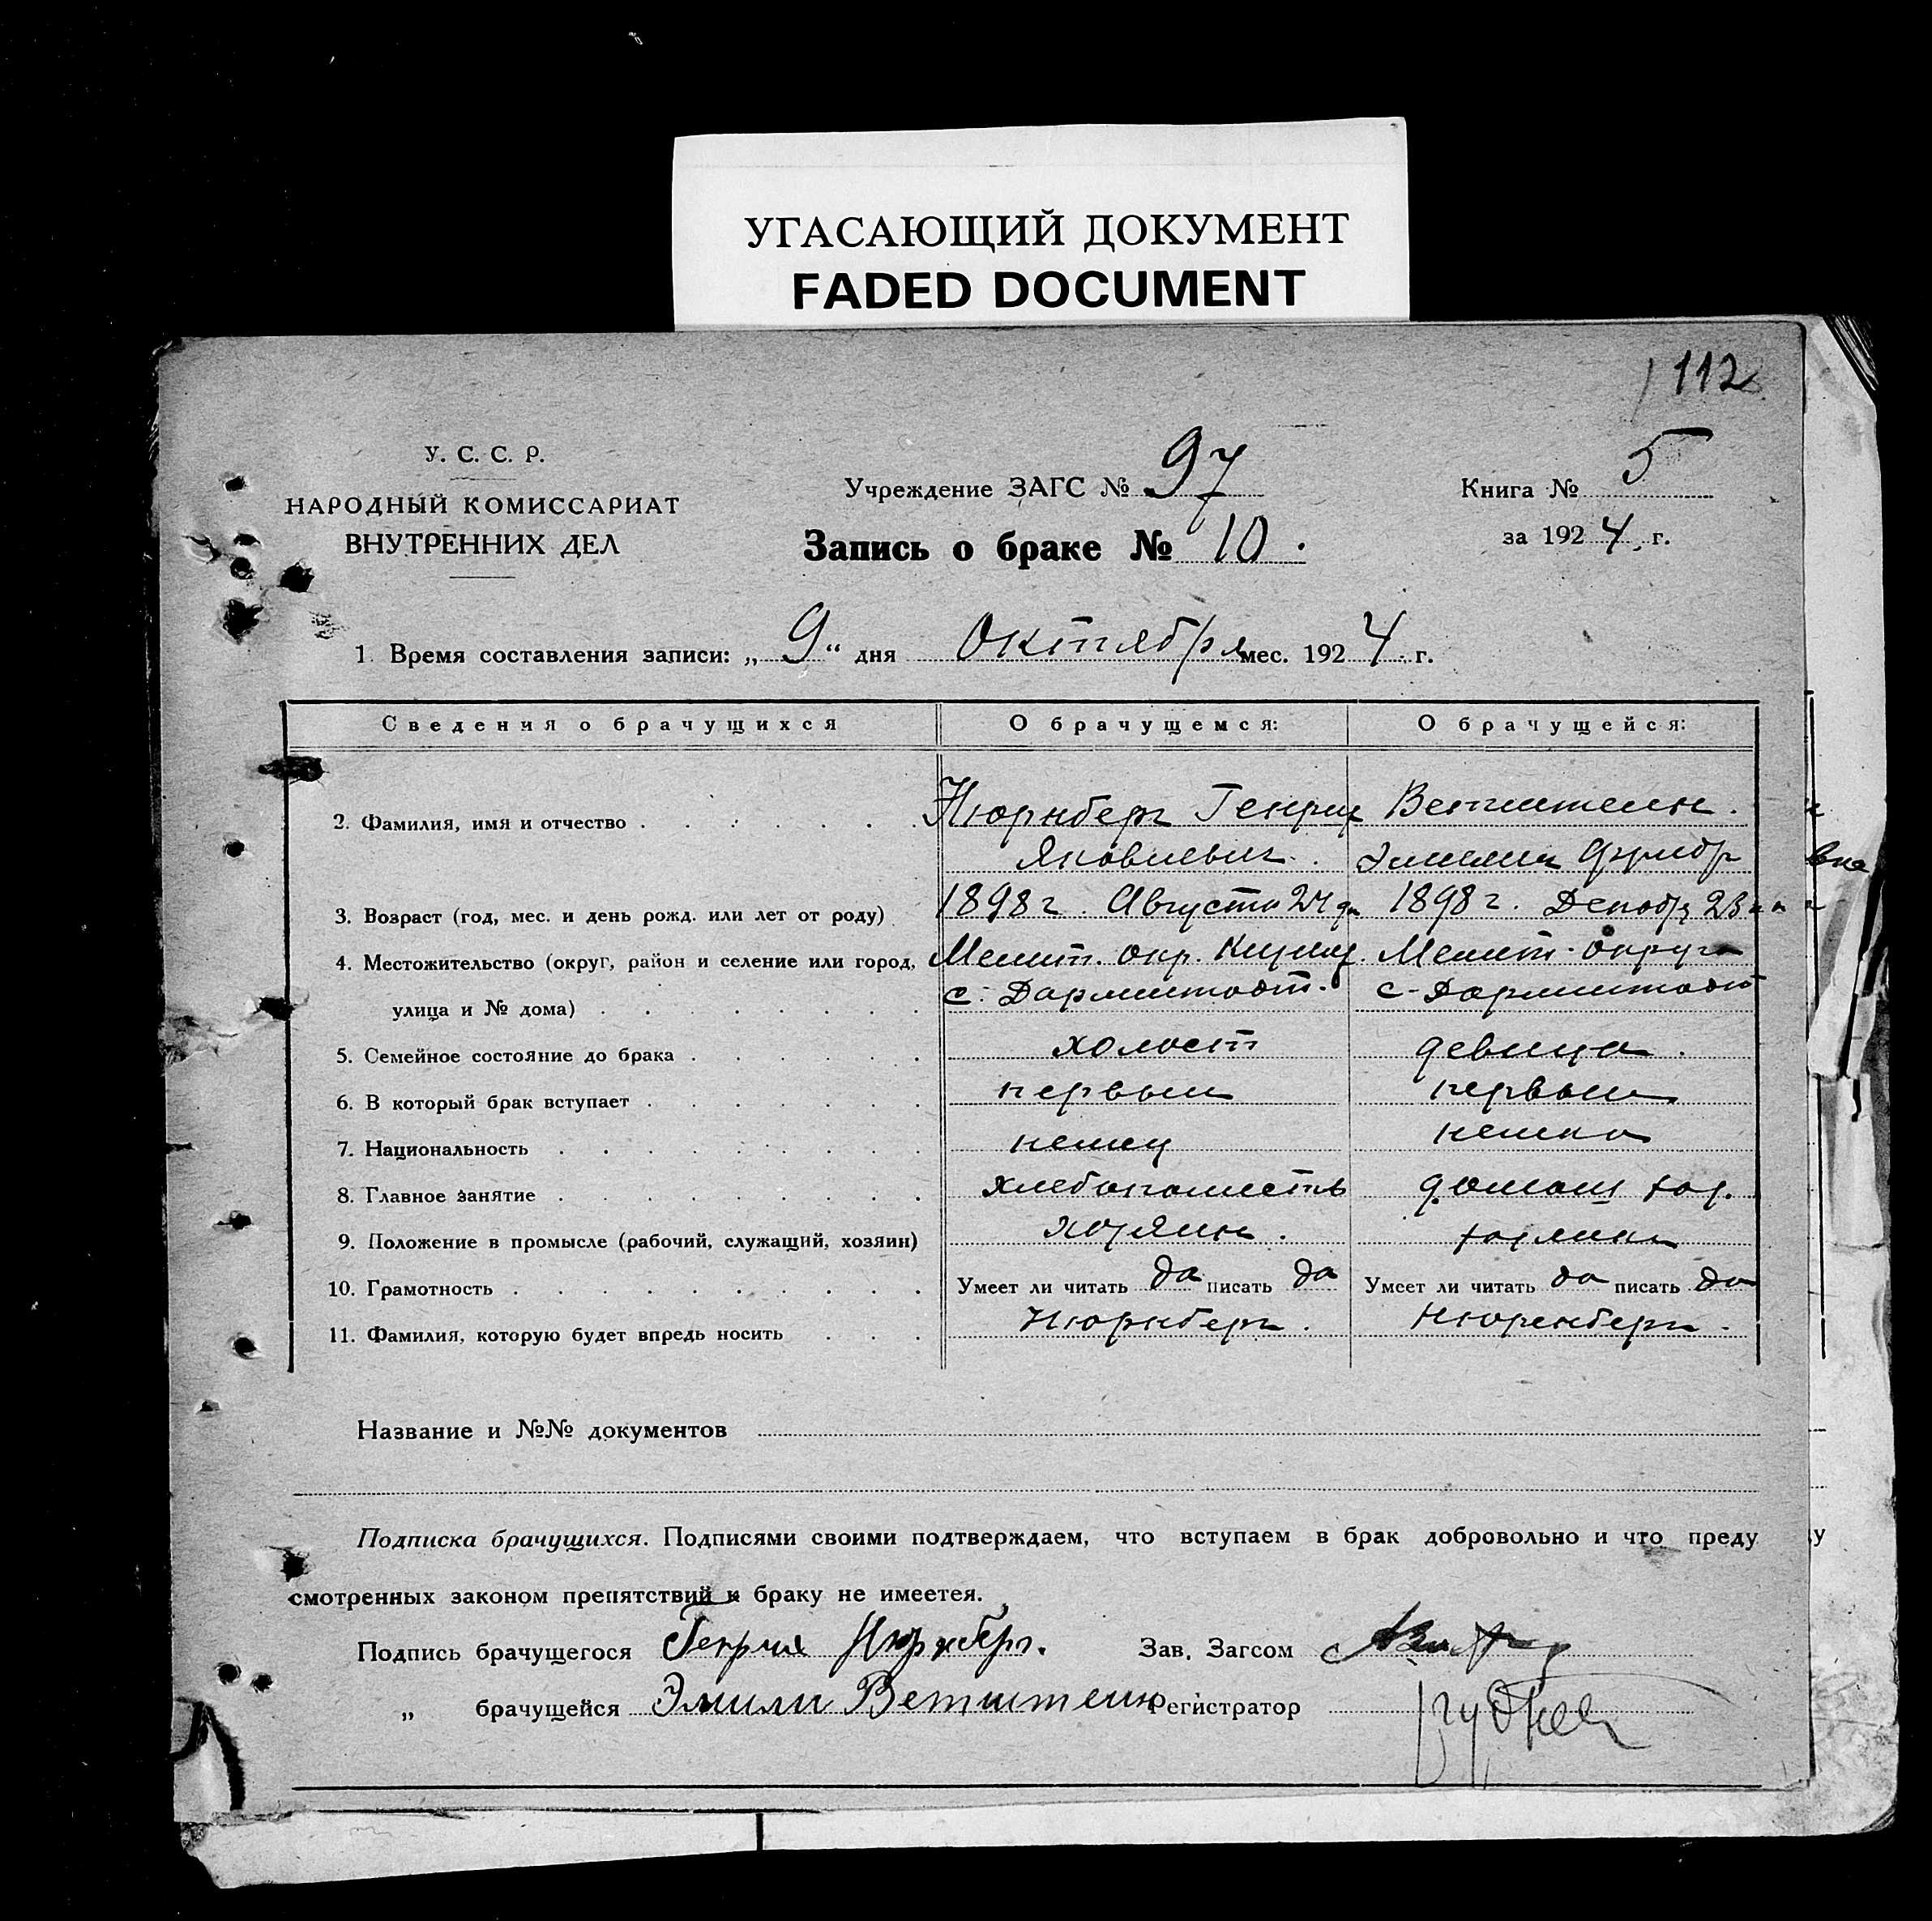 УГАСАЮЩИЙ ДОКУМЕНТ
FADED DOCUMENT
112
У. С. С. Р.
НАРОДНЫЙ КОМИССАРИАТ
ВНУТРЕННИХ ДЕЛ
Учреждение ЗАГС № 97
Запись о браке № 10.
Книга № 5
за 1924 г.
1. Время составления записи: „9“ дня Октября мес. 1924 г.
Сведения о брачущихся О брачущемся: О брачущейся:
2. Фамилия, имя и отчество Нюрнберг Генрих Ветштейн.
Яковлевич. Эмилия
3. Возраст (год, мес. и день рожд. или лет от роду) 1898 г. Августа 24 дн 1898 г. Декабр 23
4. Местожительство (округ, район и селение или город, Мелит. окр. Мелит. округа
улица и № дома) с. Дармштадт. с-Дармштадт
5. Семейное состояние до брака холост девица.
6. В который брак вступает первый первый
7. Национальность немец немка
8. Главное занятие хлебопашест домаш хоз.
9. Положение в промысле (рабочий, служащий, хозяин) хозяин. хозяйка
10. Грамотность Умеет ли читать да писать да Умеет ли читать да писать да
11. Фамилия, которую будет впредь носить Нюрнберг. Нюренберг.
Название и №№ документов
Подписка брачущихся. Подписями своими подтверждаем, что вступаем в брак добровольно и что преду
смотренных законом препятствий к браку не имеетея.
Подпись брачущегося Генрих Нюрнберг. Зав. Загсом
„ брачущейся Эмили Ветштейн Регистратор